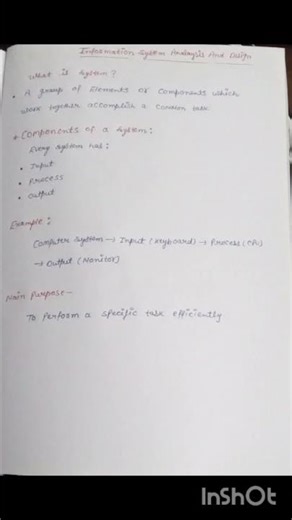 Information System Analysis And Design
What is System?
• A group of Elements or Components which
work together accomplish a common task.
* Components of a System:
Every system has:
• Input
• Process
• Output
Example:
Computer System → Input (Keyboard) → Process (CPU)
→ Output (Monitor)
Main Purpose -
To perform a specific task efficiently
InShOt